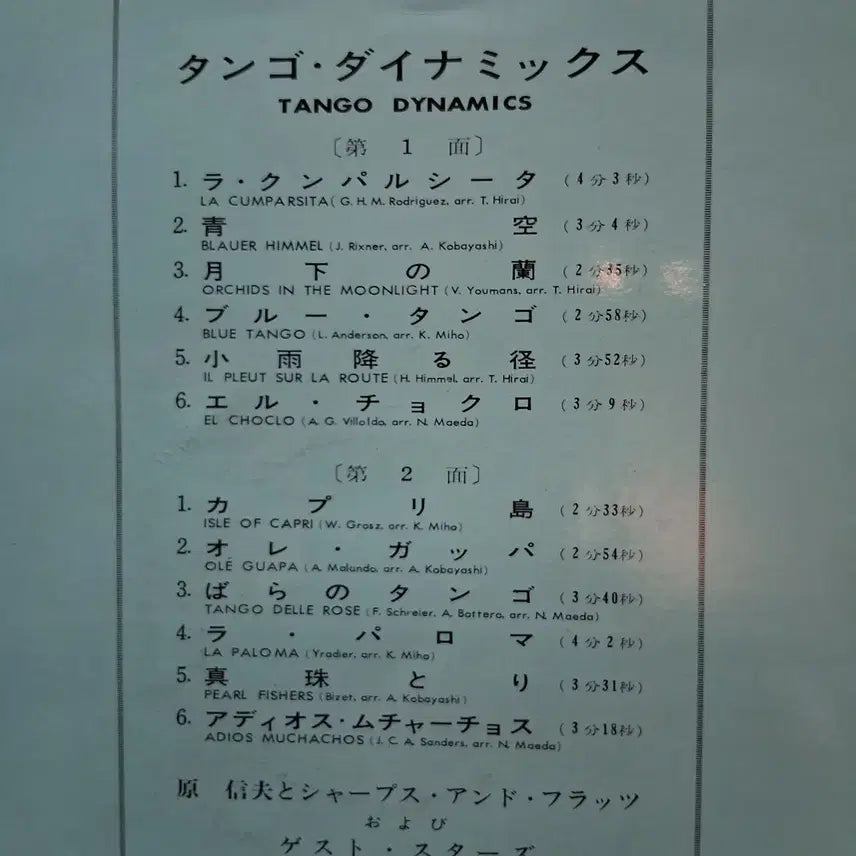 タンゴ・ダイナミックス
TANGO DYNAMICS
〔第 1 面〕
1. ラ・クンパルシータ (4分3秒)
LA CUMPARSITA( G. H. M. Rodriguez, arr. T. Hirai)
2. 青空 (3分4秒)
BLAUER HIMMEL (J. Rixner, arr. A. Kobayashi)
3. 月下の蘭 (2分35秒)
ORCHIDS IN THE MOONLIGHT (V. Youmans, arr. T. Hirai)
4. ブルー・タンゴ (2分58秒)
BLUE TANGO (L. Anderson, arr. K. Miho)
5. 小雨降る径 (3分52秒)
IL PLEUT SUR LA ROUTE (H. Himmel, arr. T. Hirai)
6. エル・チョクロ (3分9秒)
EL CHOCLO (A. G. Villoldo, arr. N. Maeda)
〔第 2 面〕
1. カプリ島 (2分33秒)
ISLE OF CAPRI (W. Grosz, arr. K. Miho)
2. オレ・ガッパ (2分54秒)
OLÉ GUAPA (A. Malando, arr. A. Kobayashi)
3. ばらのタンゴ (3分40秒)
TANGO DELLE ROSE (F. Schreier, A. Bottero, arr. N. Maeda)
4. ラ・パロマ (4分2秒)
LA PALOMA (Yradier, arr. K. Miho)
5. 真珠とり (3分31秒)
PEARL FISHERS (Bizet, arr. A. Kobayashi)
6. アディオス・ムチャーチョス (3分18秒)
ADIOS MUCHACHOS (J. C. A. Sanders, arr. N. Maeda)
原 信夫とシャープス・アンド・フラッツ
および
ゲスト・スターズ